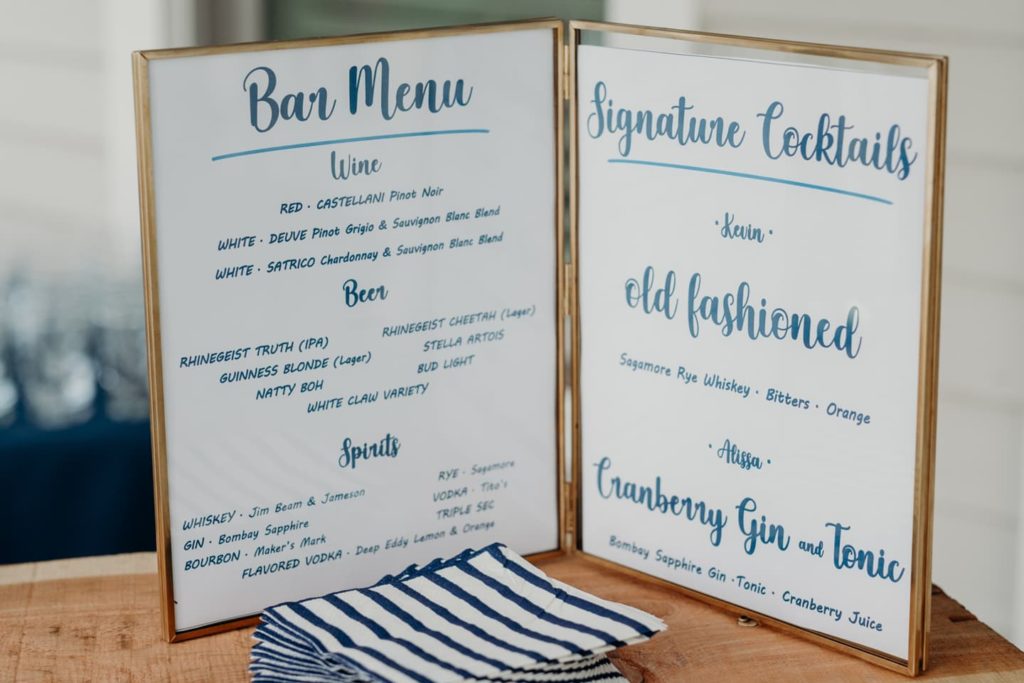 Bar Menu
Wine
RED · CASTELLANI Pinot Noir
WHITE · DEUVE Pinot Grigio & Sauvignon Blanc Blend
WHITE · SATRICO Chardonnay & Sauvignon Blanc Blend
Beer
RHINEGEIST TRUTH (IPA) RHINEGEIST CHEETAH (Lager)
GUINNESS BLONDE (Lager) STELLA ARTOIS
NATTY BOH BUD LIGHT
WHITE CLAW VARIETY
Spirits
WHISKEY · Jim Beam & Jameson RYE · Sagamore
GIN · Bombay Sapphire VODKA · Tito's
BOURBON · Maker's Mark TRIPLE SEC
FLAVORED VODKA · Deep Eddy Lemon & Orange
Signature Cocktails
· Kevin ·
old fashioned
Sagamore Rye Whiskey · Bitters · Orange
· Alissa ·
Cranberry Gin and Tonic
Bombay Sapphire Gin · Tonic · Cranberry Juice